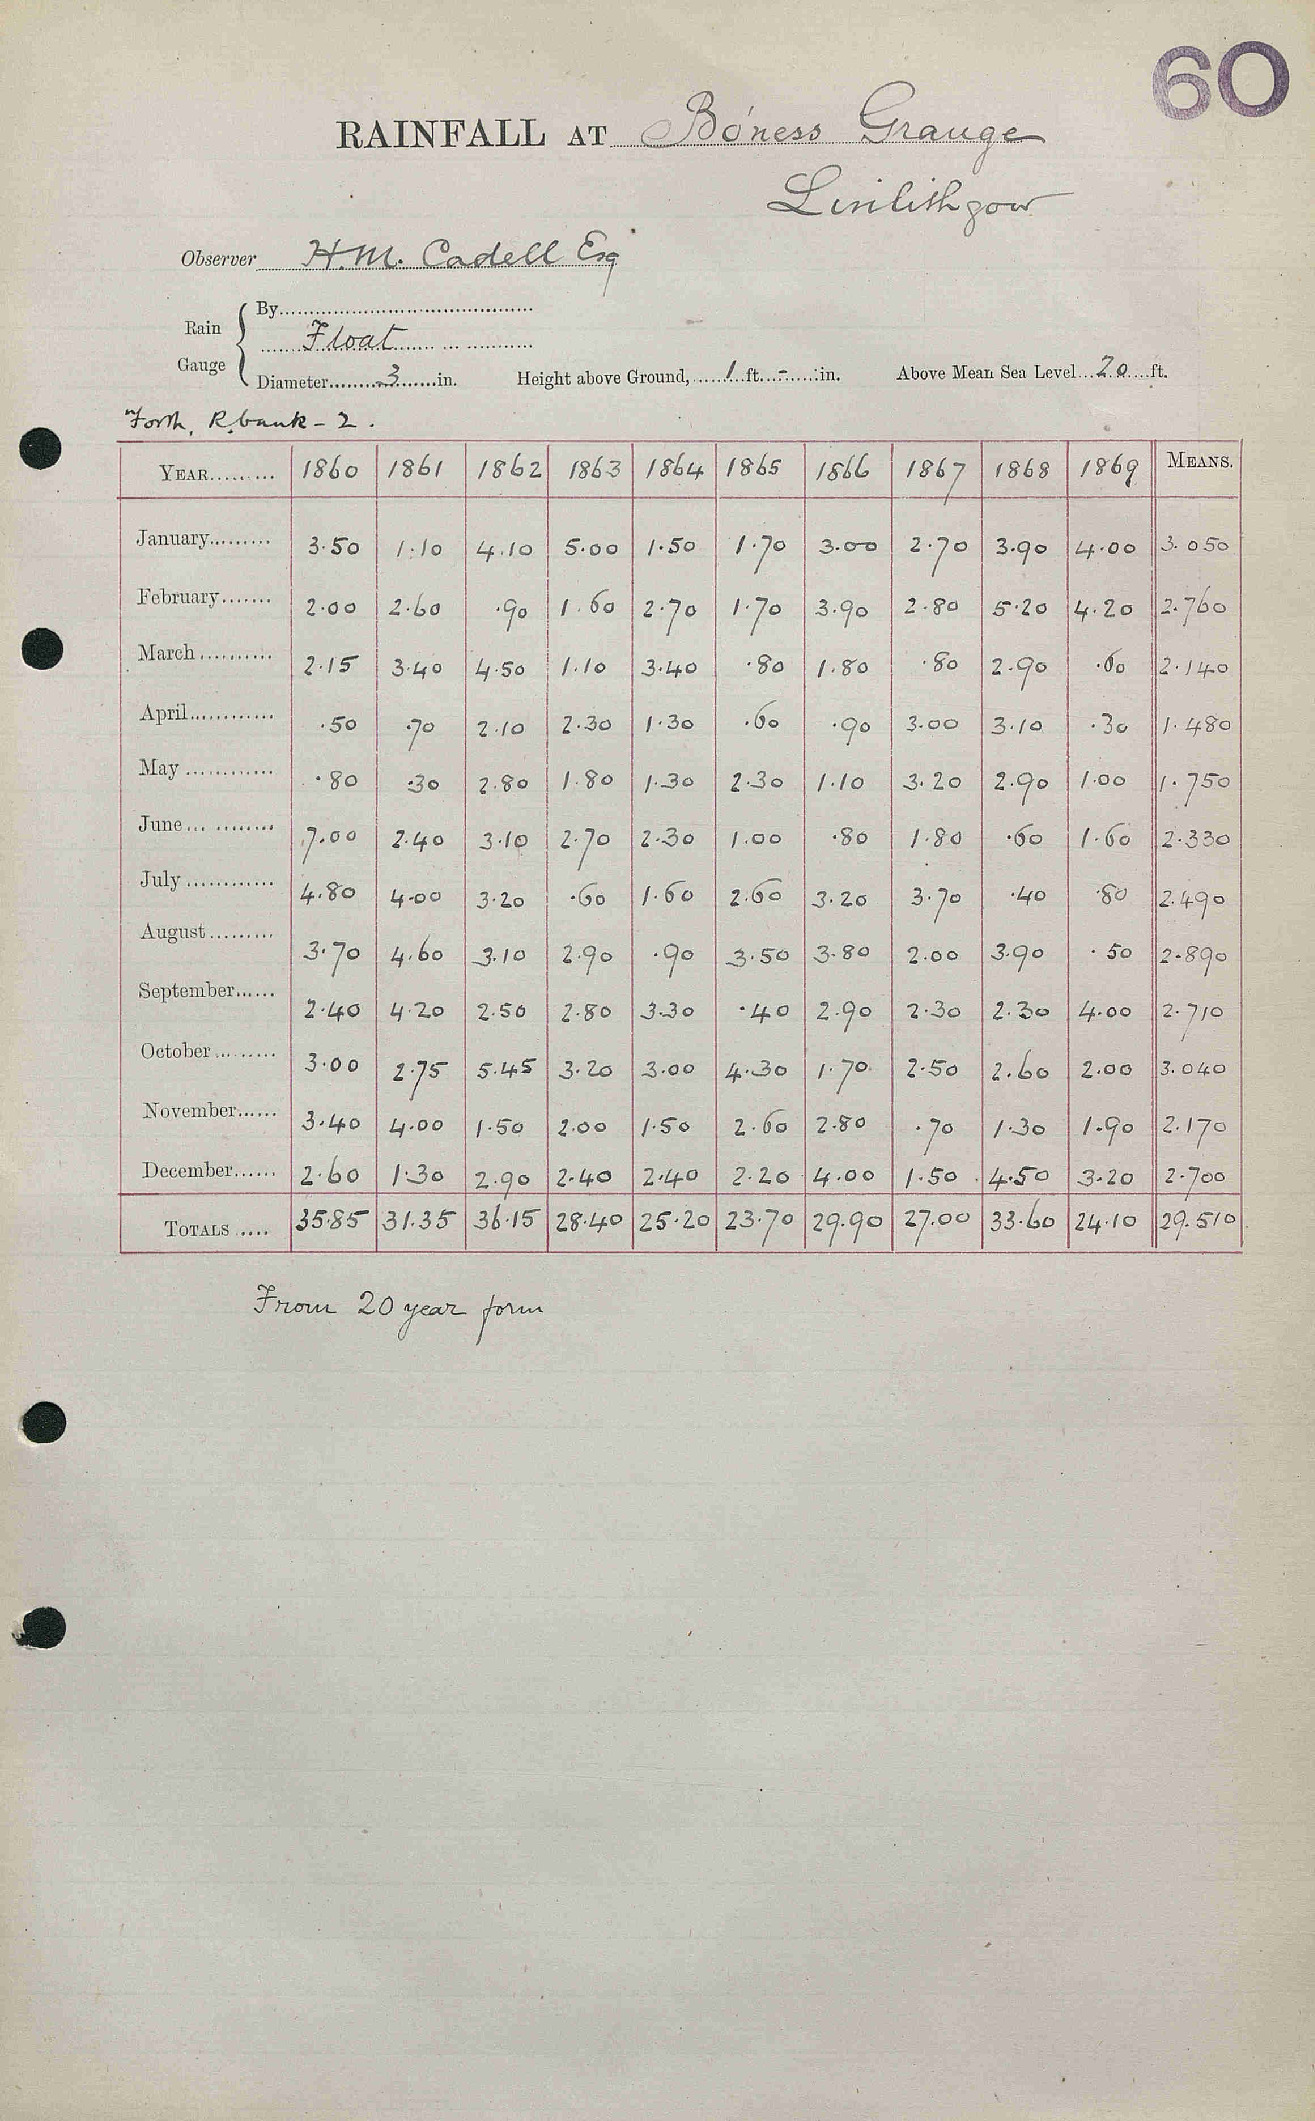 60
RAINFALL AT Bo'ness Grange
Linlithgow
Observer H.M. Cadell Esq
Rain Gauge
By
Float
Diameter 3 in. Height above Ground, 1 ft. - in. Above Mean Sea Level 20 ft.
Forth, R. bank - 2.
YEAR 1860 1861 1862 1863 1864 1865 1866 1867 1868 1869 MEANS.
January 3.50 1.10 4.10 5.00 1.50 1.70 3.00 2.70 3.90 4.00 3.050
February 2.00 2.60 .90 1.60 2.70 1.70 3.90 2.80 5.20 4.20 2.760
March 2.15 3.40 4.50 1.10 3.40 .80 1.80 .80 2.90 .60 2.140
April .50 .70 2.10 2.30 1.30 .60 .90 3.00 3.10 .30 1.480
May .80 .30 2.80 1.80 1.30 2.30 1.10 3.20 2.90 1.00 1.750
June 7.00 2.40 3.10 2.70 2.30 1.00 .80 1.80 .60 1.60 2.330
July 4.80 4.00 3.20 .60 1.60 2.60 3.20 3.70 .40 .80 2.490
August 3.70 4.60 3.10 2.90 .90 3.50 3.80 2.00 3.90 .50 2.890
September 2.40 4.20 2.50 2.80 3.30 .40 2.90 2.30 2.30 4.00 2.710
October 3.00 2.75 5.45 3.20 3.00 4.30 1.70 2.50 2.60 2.00 3.040
November 3.40 4.00 1.50 2.00 1.50 2.60 2.80 .70 1.30 1.90 2.170
December 2.60 1.30 2.90 2.40 2.40 2.20 4.00 1.50 4.50 3.20 2.700
TOTALS 35.85 31.35 36.15 28.40 25.20 23.70 29.90 27.00 33.60 24.10 29.510
From 20 year form